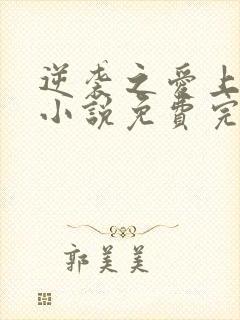 逆袭之爱上
小說免費完
郭美美